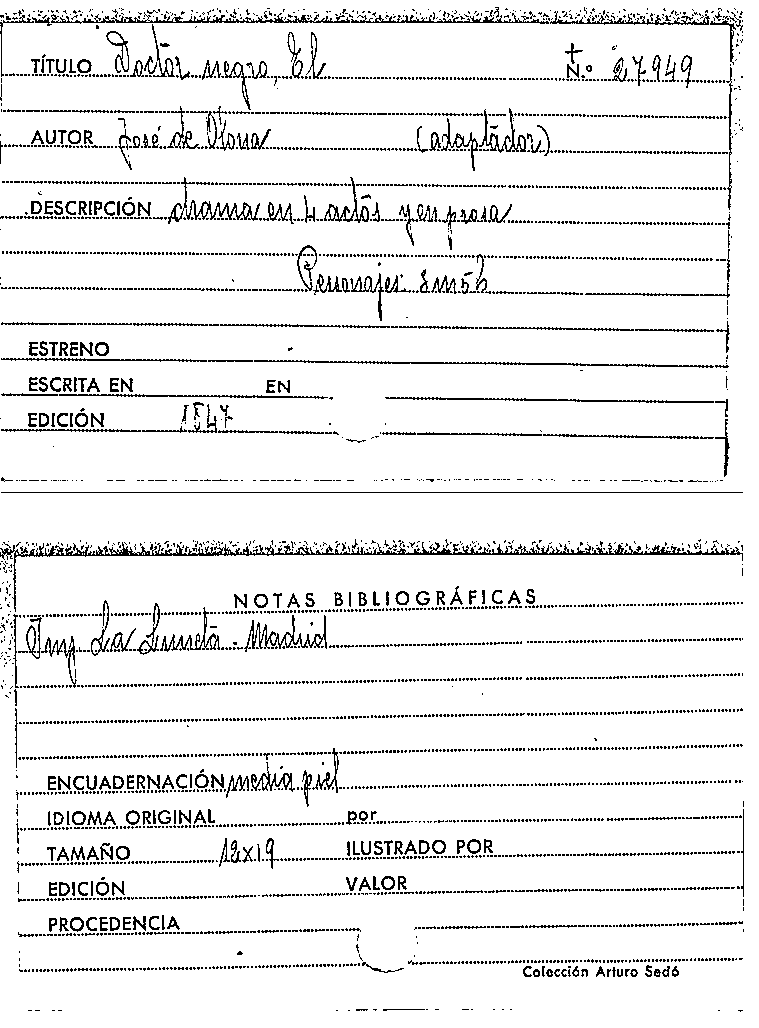 TÍTULO Doctor negro, El N.º 27949
AUTOR José de Olona (adaptador)
DESCRIPCIÓN drama en 4 actos y en prosa
Personajes 8m5h
ESTRENO
ESCRITA EN EN
EDICIÓN 1847
NOTAS BIBLIOGRÁFICAS
Imp La Luneta - Madrid
ENCUADERNACIÓN media piel
IDIOMA ORIGINAL por
TAMAÑO 12x19 ILUSTRADO POR
EDICIÓN VALOR
PROCEDENCIA
Colección Arturo Sedó